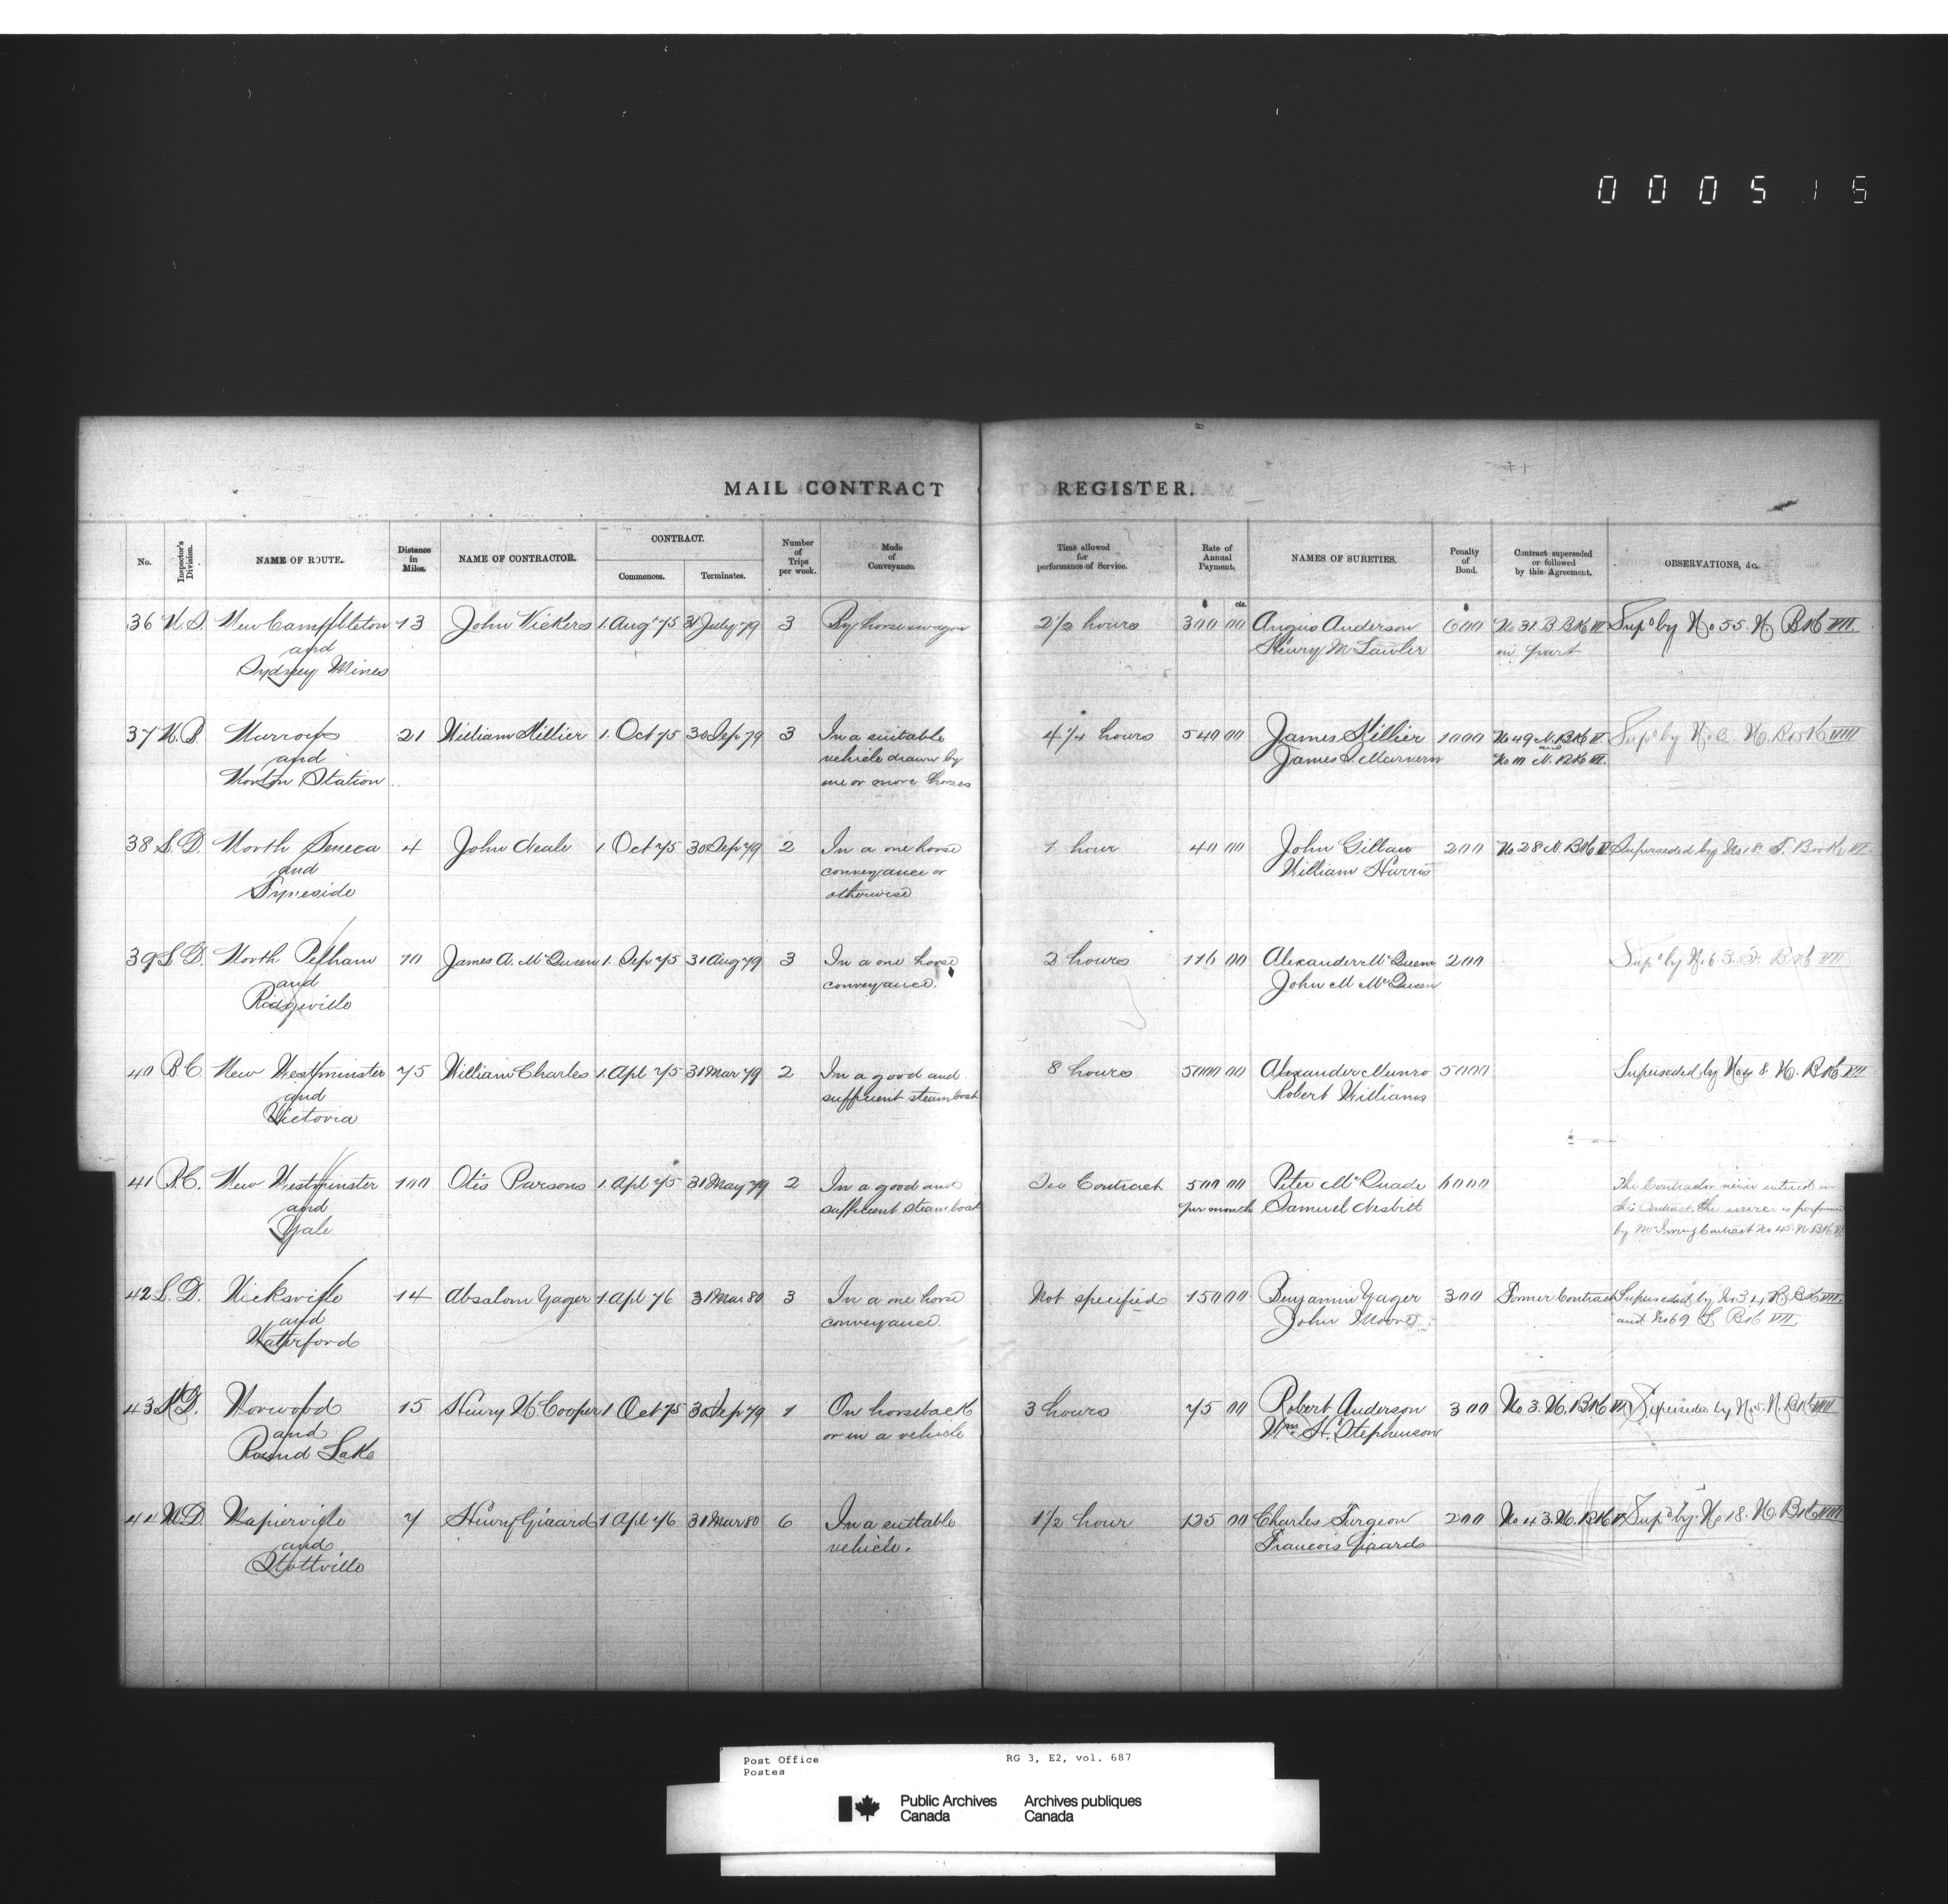 000515
MAIL CONTRACT REGISTER.
No. Inspector's Division. NAME OF ROUTE. Distance in Miles. NAME OF CONTRACTOR. CONTRACT. Commences. Terminates. Number of Trips per week. Mode of Conveyance. Time allowed for performance of Service. Rate of Annual Payment. NAMES OF SURETIES. Penalty of Bond. Contract superseded or followed by this Agreement. OBSERVATIONS, &c.
$ cts. $
36 N.S. New Campbleton 13 John Vickers 1. Aug '75 31 July 79 3 By horse wagon 2 1/2 hours 300 00 Angus Anderson 600 No 31. B. BK VI Supd by No 55. N. BK VII.
and Henry McLawler in part
Sydney Mines
37 N.B. Murrows 21 William Hillier 1. Oct 75 30 Sep 79 3 In a suitable 4 1/4 hours 540 00 James Hillier 1000 No 49 N. BK V Supd by N. Book VIII
and vehicle drawn by James S. Marvern and
Norton Station one or more horses N. BK VI.
38 S.D. North Seneca 4 John Neale 1 Oct 75 30 Sep 79 2 In a one horse 1 hour 40 00 John Gillan 200 No 28 N. BK Superseded by No 18 S. Book VI
and conveyance or William Harris
Tyneside otherwise
39 S.D. North Pelham 10 James A. McQueen 1. Sep 75 31 Aug 79 3 In a one horse 2 hours 116 00 Alexander McQueen 200 Supd by No 63. S. BK VII
and conveyance. John M McQueen
Ridgeville
40 B.C. New Westminster 75 William Charles 1. Apl 75 31 Mar 79 2 In a good and 8 hours 5000 00 Alexander Munro 5000 Superseded by No 48 N. BK VII
and sufficient steamboat Robert Williams
Victoria
41 B.C. New Westminster 100 Otis Parsons 1. Apl 75 31 May 79 2 In a good and See Contract 500 00 Peter McQuade 6000 The Contractor never entered on
and sufficient steamboat per month Samuel Nesbitt this contract, the service is performed
Yale by Mr Irving Contract No 45. N. BK VI
42 S.D. Nicksville 14 Absalom Yager 1. Apl 76 31 Mar 80 3 In a one horse Not specified 150 00 Benjamin Yager 300 Former Contract Superseded by No 34 R. BK VII.
and conveyance. John Moore and No 69 S. BK VII.
Waterford
43 K.D. Norwood 15 Henry H Cooper 1 Oct 75 30 Sep 79 1 On horseback 3 hours 75 00 Robert Anderson 300 No 3. N. BK VI Superseded by No 5. N. BK VIII
and or in a vehicle Wm. H. Stephenson
Round Lake
44 M.D. Napierville 7 Henry Girard 1 Apl 76 31 Mar 80 6 In a suitable 1 1/2 hour 125 00 Charles Turgeon 200 No 43. N. BK V Supd by No 18. N. BK VIII
and vehicle. Francois Girard
Stottville
Post Office RG 3, E2, vol. 687
Postes
Public Archives Archives publiques
Canada Canada